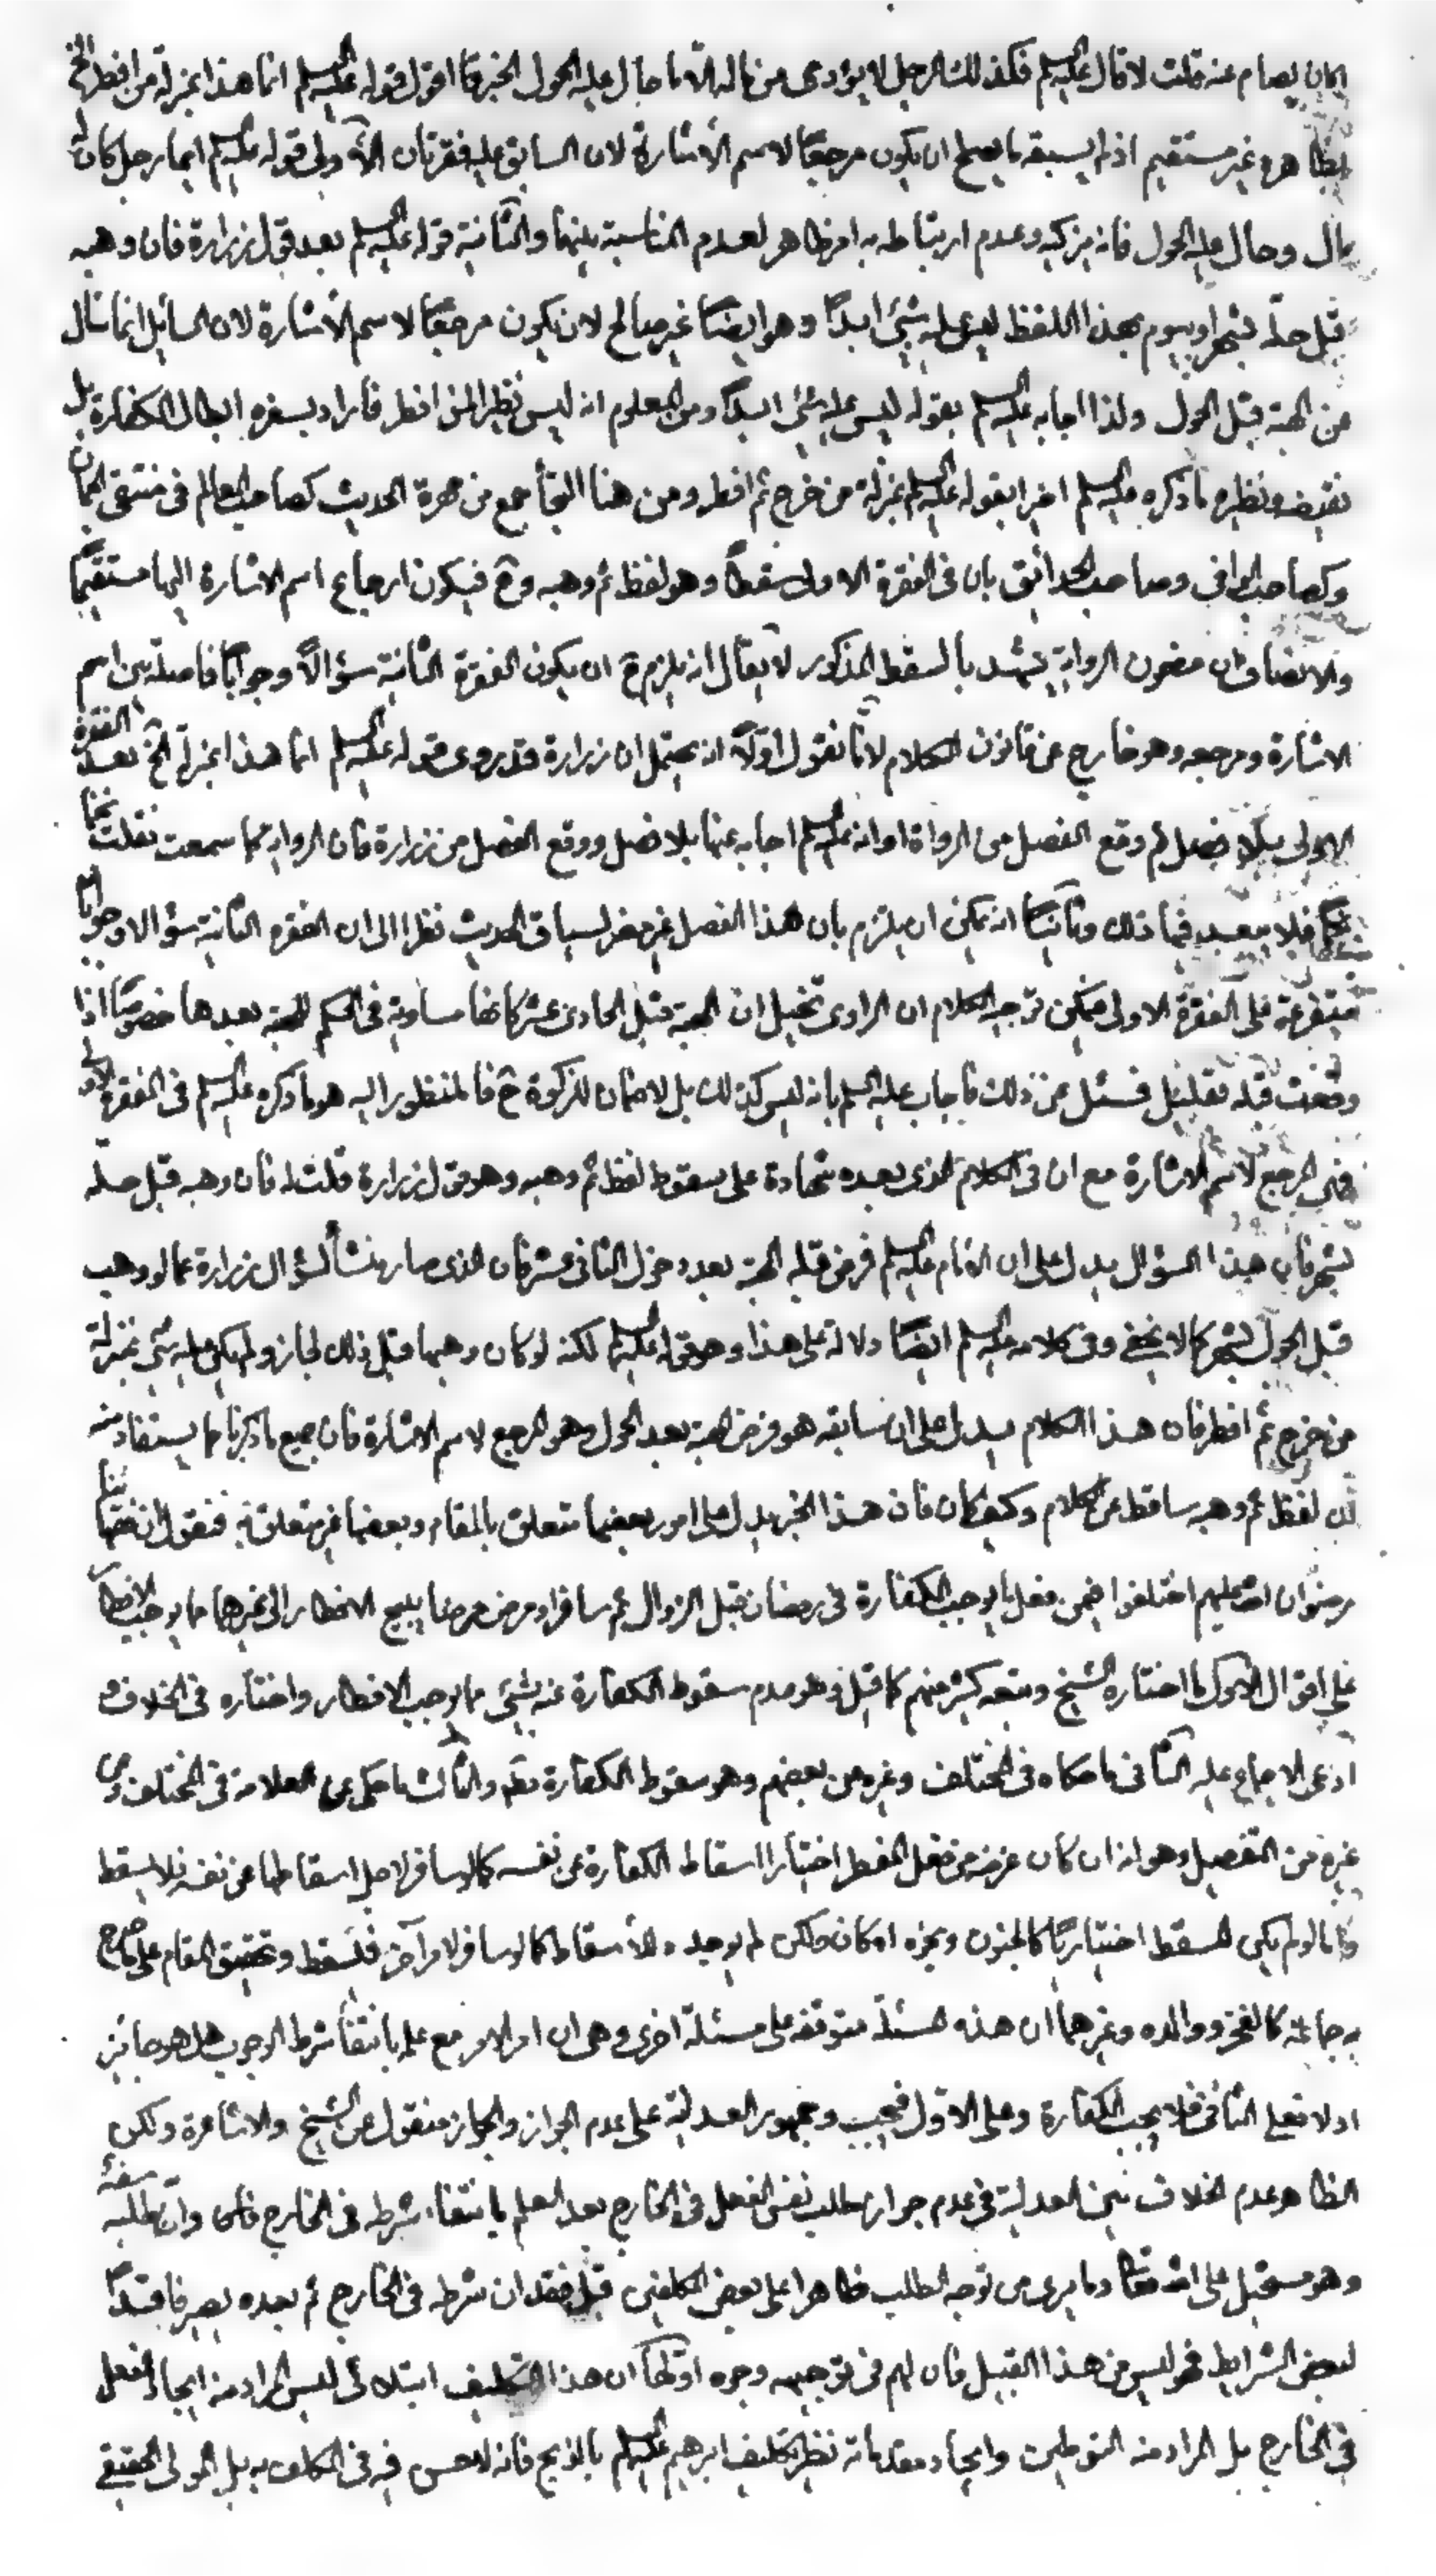 ايمان يصام عنه قلت لا قال عليه السلم فكذلك الرجل لا يؤدى من ماله الا ما حال عليه الحول الخبر قا اقول قوله عليه السلم انما هذا بمنزلة من افطر الخ
بظاهره غير مستقيم اذ لم يسبقه ما يصلح ان يكون مرجعا لاسم الأشارة لان السابق عليه فقرتان الاولى قوله عليه السلم ايما رجل كان له
مال وحال عليه الحول فانه يزكيه وعدم ارتباطه به امر ظاهر لعدم المناسبة بينهما والثانية قوله عليه السلم بعد قول زرارة فان وهبه
قبل حله بشهر او بيوم بهذا اللفظ ليس عليه شئ ابدا وهو ايضا غير صالح لان يكون مرجعا لاسم الأشارة لان السائل انما سأل
من الهبة قبل الحول ولذا اجابه عليه السلم بقوله ليس عليه شئ ابدا ومن المعلوم انه ليس نظير المن افطر فاراد بسفره ابطال الكفارة بل
نقيضه ونظيره ما ذكره عليه السلم اخيرا بقوله عليه السلم بمنزلة من خرج ثم افطر ومن هنا التجأ جمع من مهرة الحديث كصاحب المعالم فى منتقى الجمان
وكصاحب الوافى وصاحب الحدائق بان فى الفقرة الاولى سقطا وهو لفظ ثم وهبه وح فيكون ارجاع اسم الاشارة اليها مستقيما
والانصاف ان مضمون الرواية يشهد بالسقط المذكور لا يقال انه يلزم ح ان يكون الفقرة الثانية سؤالا وجوابا فاصلة بين اسم
الاشارة ومرجعه وهو خارج عن قانون الكلام لانا نقول اولا انه يحتمل ان زرارة قد روى قوله عليه السلم انما هذا بمنزلة الخ بعد الفقرة
الاولى بلا فصل ثم وقع الفصل من الرواة او انه عليه السلم اجابه عنها بلا فصل ووقع الفصل من زرارة فان الرواية كما سمعت نقلت
فلا يبعد فيها ذلك وثانيا انه يمكن ان يلتزم بان هذا الفصل غير مضر لسياق الحديث نظرا الى ان الفقره الثانية سؤالا وجوابا
متفرعة على الفقرة الاولى فيمكن توجيه الكلام ان الراوى تخيل ان الهبة قبل الحادى عشر كانها مساوية فى الحكم للهبة بعدها خصوصا اذا
وقعت قبله بقليل فسئل عن ذلك فاجاب عليه السلم بانه ليس كذلك بل لا ضمان للزكوة ح فالمنظور اليه هو ما ذكره عليه السلم فى الفقرة الاولى
فهى المرجع لاسم الاشارة مع ان فى الكلام الذى بعده شهادة على سقوط لفظ ثم وهبه وهو قول زرارة قلت له فان وهبه قبل حله
بشهر فان هذا السؤال يدل على ان الامام عليه السلم فرض قبله الهبة بعد دخول الثانى عشر فان الذى صار منشأ لسؤال زرارة عما لو وهب
قبل الحول بشهر كما لا يخفى وفى كلامه عليه السلم ايضا دلالة على هذا وهو قوله عليه السلم لكنه لو كان وهبها قبل ذلك لجاز ولم يكن عليه شئ بمنزلة
من خرج ثم افطر فان هذا الكلام يدل على ان سابقه هو فرض الهبة بعد الحول وهو المرجع لاسم الاشارة فان جميع ما ذكرنا مما يستفاد منه
ان لفظ ثم وهبه ساقط عن الكلام وكيف كان فان هذا الخبر يدل على امور بعضها متعلق بالمقام وبعضها غير متعلق به فنقول ان فقهائنا
رضوان الله عليهم اختلفوا فيمن فعل ما يوجب الكفارة فى رمضان قبل الزوال ثم سافر او مرض مرضا يبيح الافطار الى غيرهما مما يوجب الافطار
على اقوال الاول ما اختاره الشيخ وتبعه كثير منهم كما قيل وهو عدم سقوط الكفارة عنه بشئ مما يوجب الافطار واختاره فى الخلاف و
ادعى الاجماع عليه الثانى ما حكاه فى المختلف وغيره من بعضهم وهو سقوط الكفارة والثالث ما حكى عن العلامة فى المختلف ومن
غيره من التفصيل وهو انه ان كان غرضه من فعل المفطر اختيارا اسقاط الكفارة عن نفسه كما لو سافر لاجل اسقاطها عن نفسه فلا يسقط
واما لو لم يكن المسقط اختياريا كالجنون ونحوه او كان ولكن لم يوجده للأسقاط كما لو سافر لامر آخر فتسقط وتحقيق المقام على ما صرح
به جماعة كالفخر ووالده وغيرهما ان هذه المسئلة متوقفه على مسئلة اخرى وهى ان امر الامر مع علمه بانتفاء شرط الوجوب هل هو جائز
او لا فعلى الثانى فلا يجب الكفارة وعلى الاول فيجب وجمهور العدلية على عدم الجواز والجواز منقول عن الشيخ والاشاعرة ولكن
الظاهر عدم الخلاف بين العدلية فى عدم جواز طلب نفس الفعل فى الخارج بعد العلم بانتفاء شرطه فى الخارج فان طلبه سفه
وهو مستحيل على الله تعالى وما يرى من توجه الطلب ظاهرا على بعض المكلفين قبل فقدان شرطه فى الخارج ثم بعده يصير فاقدا
لبعض الشرايط فهو ليس من هذا القبيل فان لهم فى توجيهه وجوه اولها ان هذا التكليف ابتلائى ليس المراد منه ايجاد الفعل
فى الخارج بل المراد منه التوطين وايجاد مقدماته نظير تكليف ابرهيم عليه السلم بالذبح فانه لا حسن فيه فى المكلف به بل المولى الحقيقى